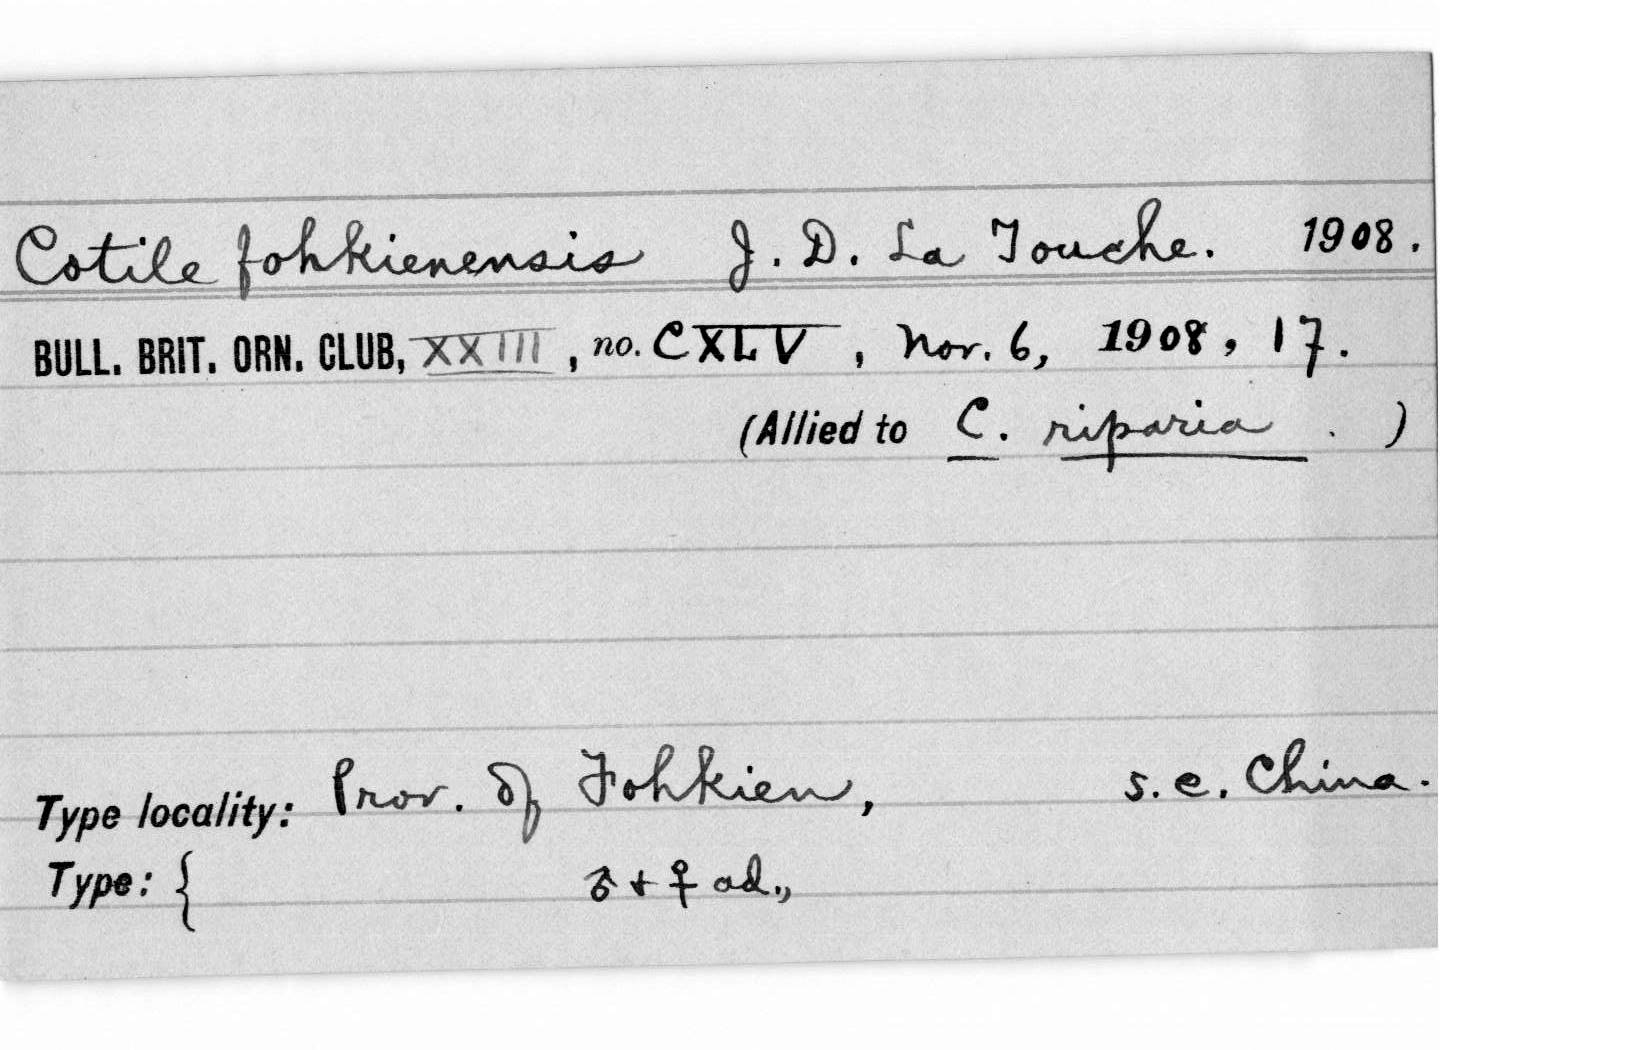 Cotile fohkienensis J. D. La Touche. 1908.
BULL. BRIT. ORN. CLUB, XXIII, no. CXLV, Nov. 6, 1908, 17.
(Allied to C. riparia . )
Type locality: Prov. of Fohkien, s. e. China.
Type: { ♂ + ♀ ad.,